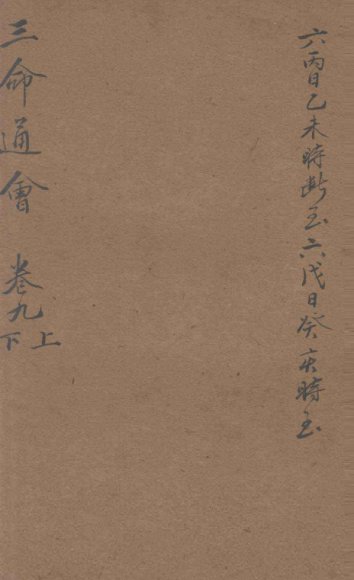 六丙日乙未時断至六戊日癸亥時至
三命通會 卷九上下